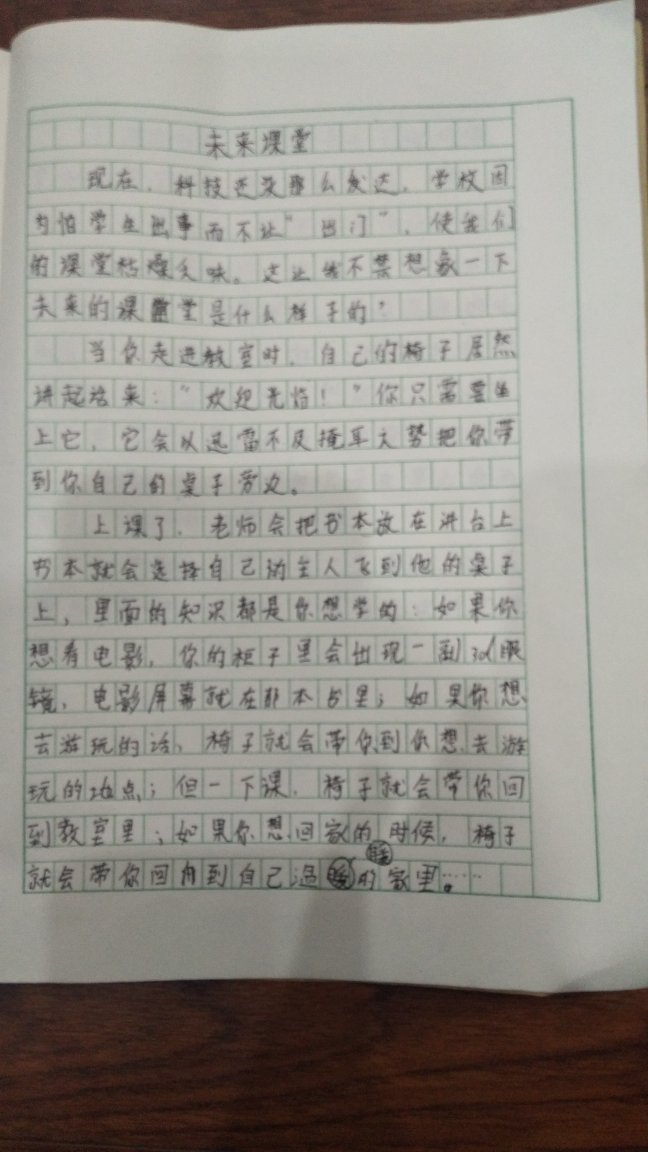 未来课堂
现在，科技还没那么发达，学校因
为怕学生出事而不让“出门”，使我们
的课堂枯燥乏味。这让我不禁想象一下
未来的课堂是什么样子的？
当你走进教室时，自己的椅子居然
讲起话来：“欢迎光临！”你只需要坐
上它，它会以迅雷不及掩耳之势把你带
到你自己的桌子旁边。
上课了，老师会把书本放在讲台上
书本就会选择自己的主人飞到他的桌子
上，里面的知识都是你想学的：如果你
想看电影，你的柜子里会出现一副3d眼
镜，电影屏幕就在那本书里；如果你想
去游玩的话，椅子就会带你到你想去游
玩的地点；但一下课，椅子就会带你回
到教室里；如果你想回家的时候，椅子
就会带你回到自己温暖的家里……